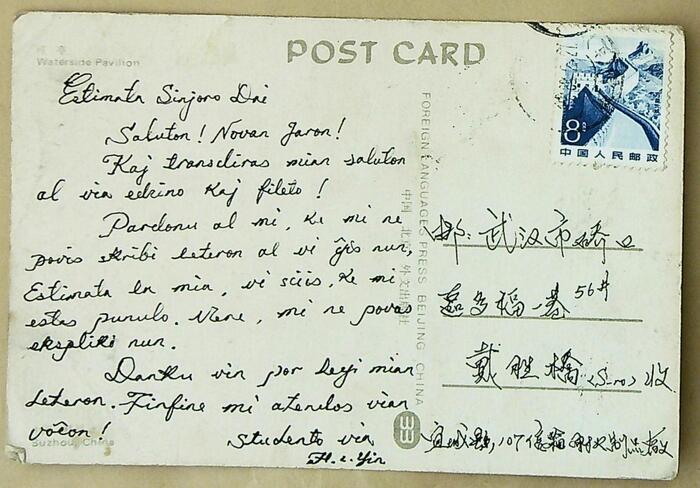 Waterside Pavilion
POST CARD
Estimata Sinjoro Dai
Saluton! Novan Jaron!
Kaj transdiras mian saluton
al via edzino kaj fileto!
Pardonu al mi, ke mi ne
povis skribi leteron al vi ĝis nun,
Estimata la mia, vi sciis, ke mi
estas punulo. Vere, mi ne povas
ekspliki nun.
Danku vin por legi mian
leteron. Finfine mi atendos vian
voĉon!
Studento via
H. L. Yin
Suzhou, China
FOREIGN LANGUAGES PRESS BEIJING CHINA
中国 北京 外文出版社
8分
中国人民邮政
武汉市桥口
多福一基 56号
戴胜桥 (S-ro) 收